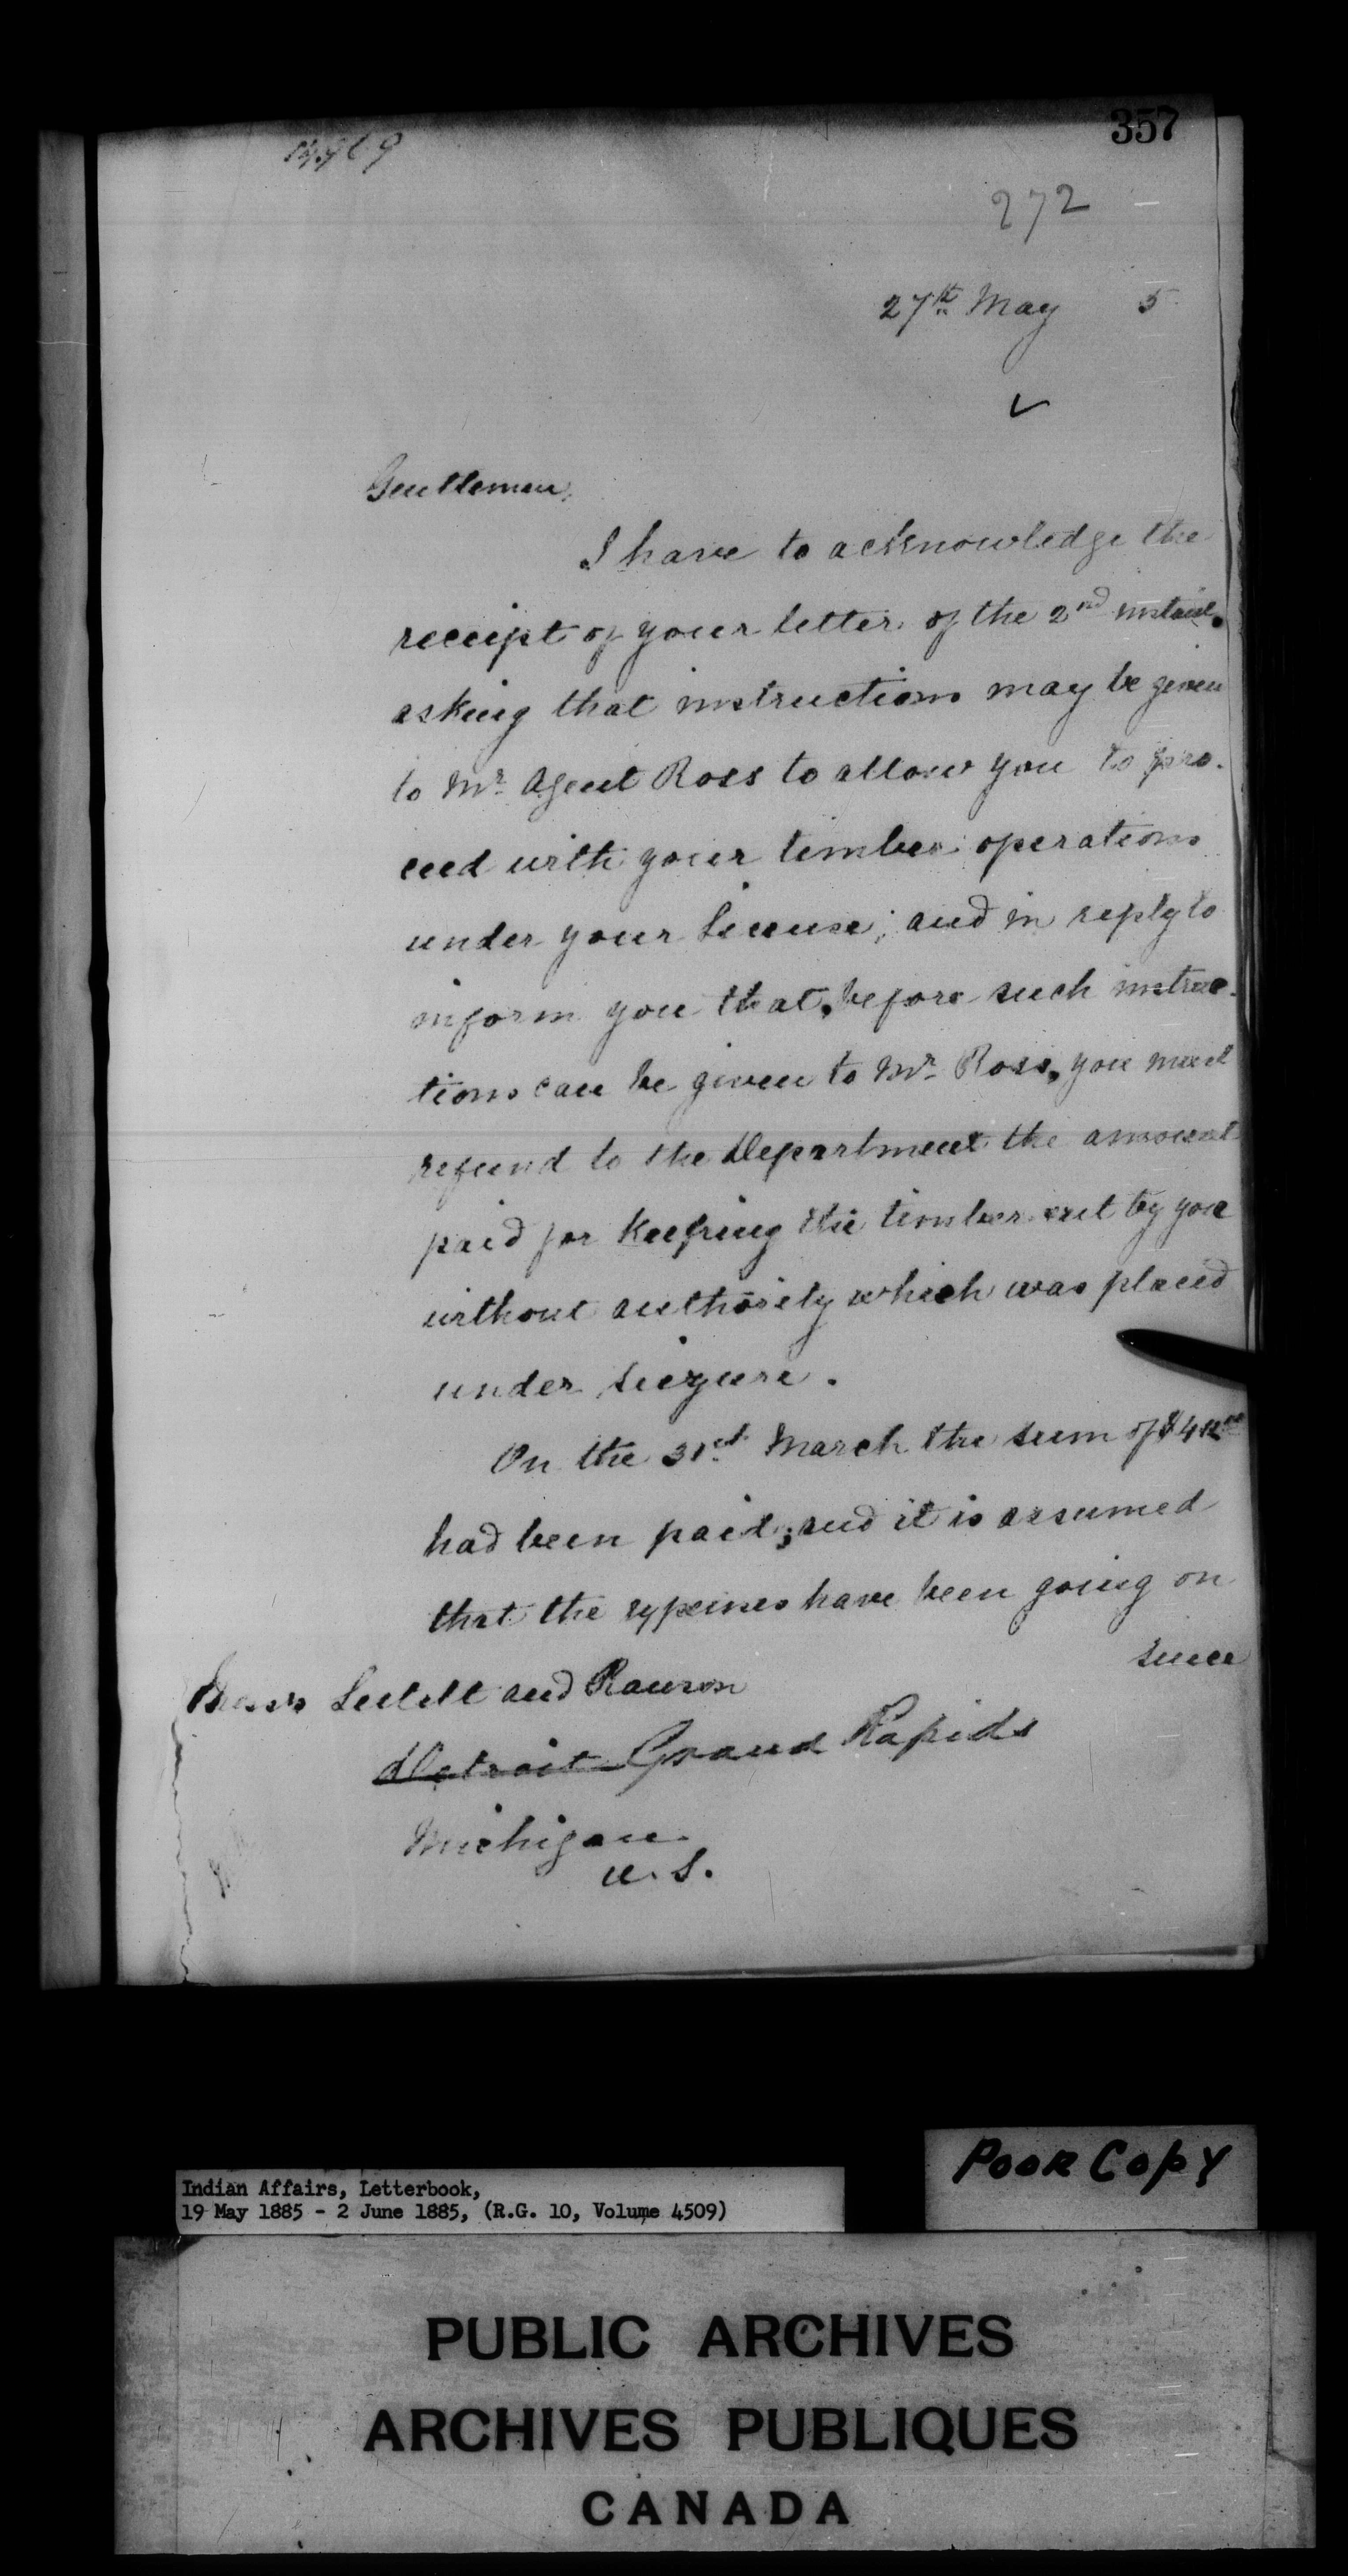 357
272
27th May 5
Gentlemen,
I have to acknowledge the
receipt of your letter of the 2nd instant.
asking that instructions may be given
to Mr. Agent Ross to allow you to pro-
ceed with your timber operations
under your License; and in reply to
inform you that, before such instruc-
tions can be given to Mr. Ross, you must
refund to the Department the amount
paid for keeping the timber cut by you
without authority which was placed
under seizure.
On the 31st March the sum of
had been paid; and it is assumed
that the expenses have been going on
since
Messrs and Ranson
Detroit Grand Rapids
Michigan
U.S.
Poor Copy
Indian Affairs, Letterbook,
19 May 1885 - 2 June 1885, (R.G. 10, Volume 4509)
PUBLIC ARCHIVES
ARCHIVES PUBLIQUES
CANADA